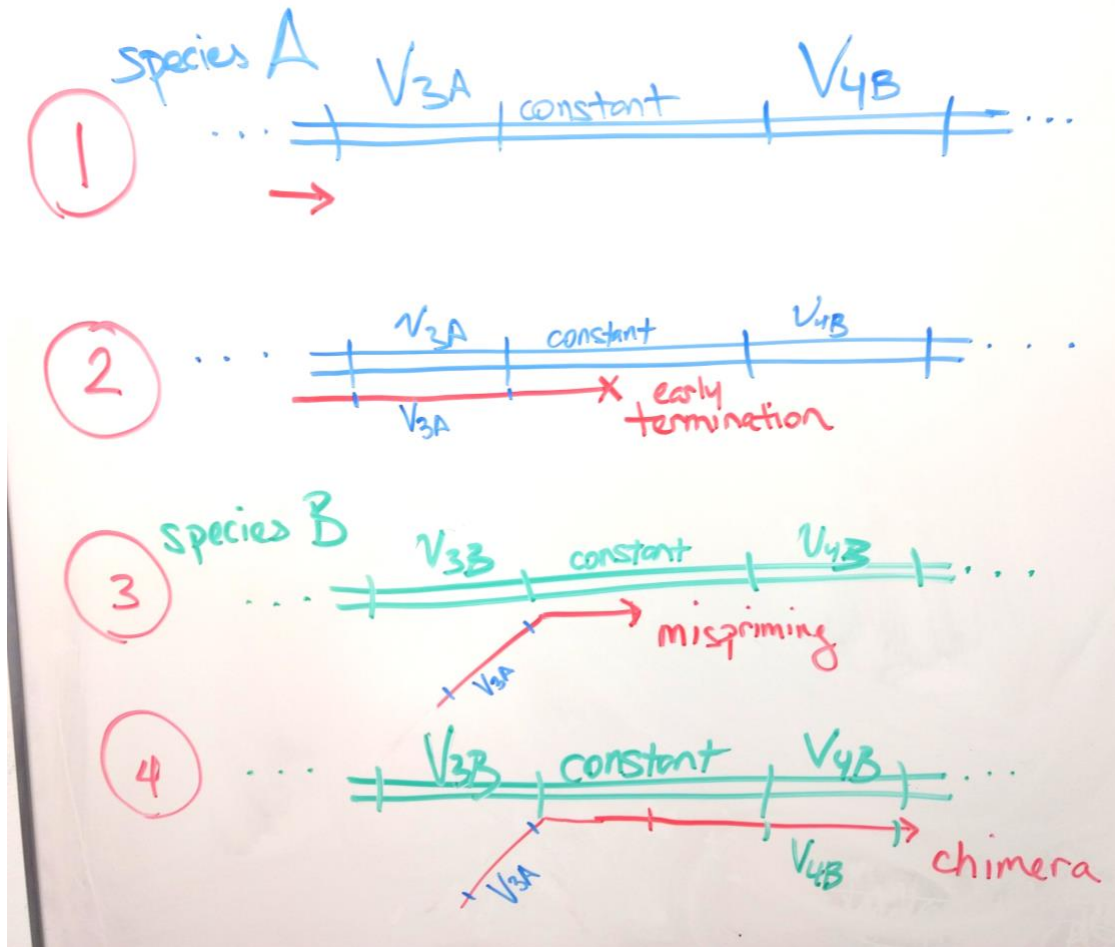 species A
V3A constant V4B
1
2
V3A constant V4B
V3A
early
termination
species B
V3B constant V4B
3
mispriming
V3A
V3B constant V4B
4
V3A
V4B
chimera